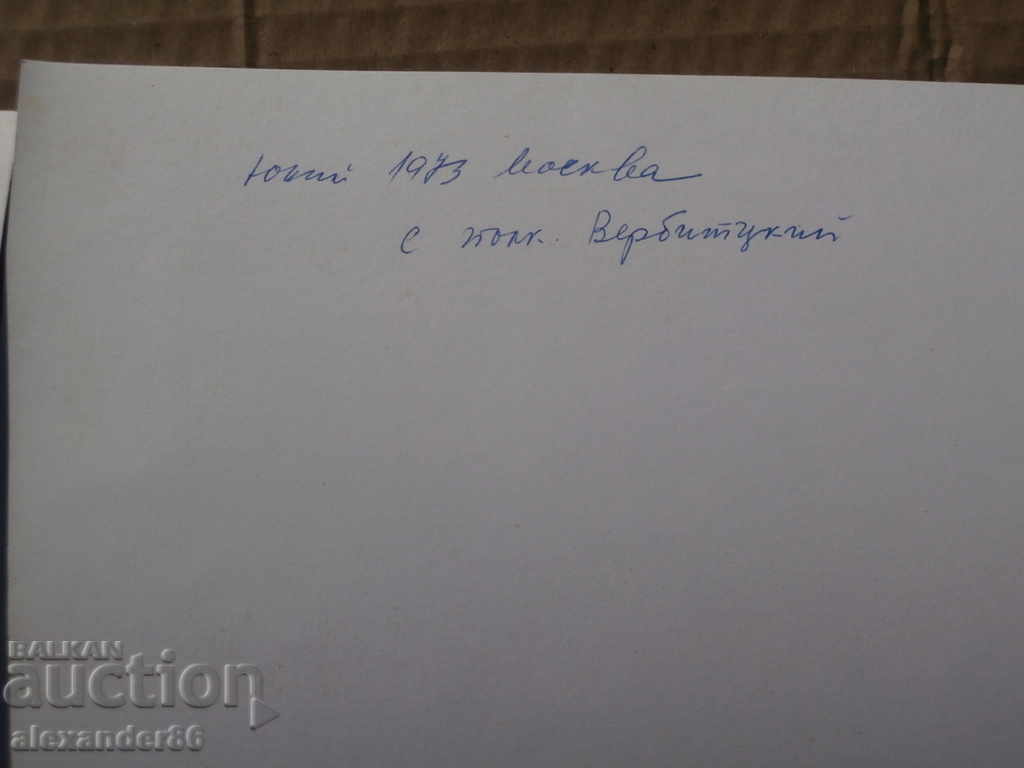 1973 Москва
с полк. Вербитцкий
BALKAN
auction
alexander86